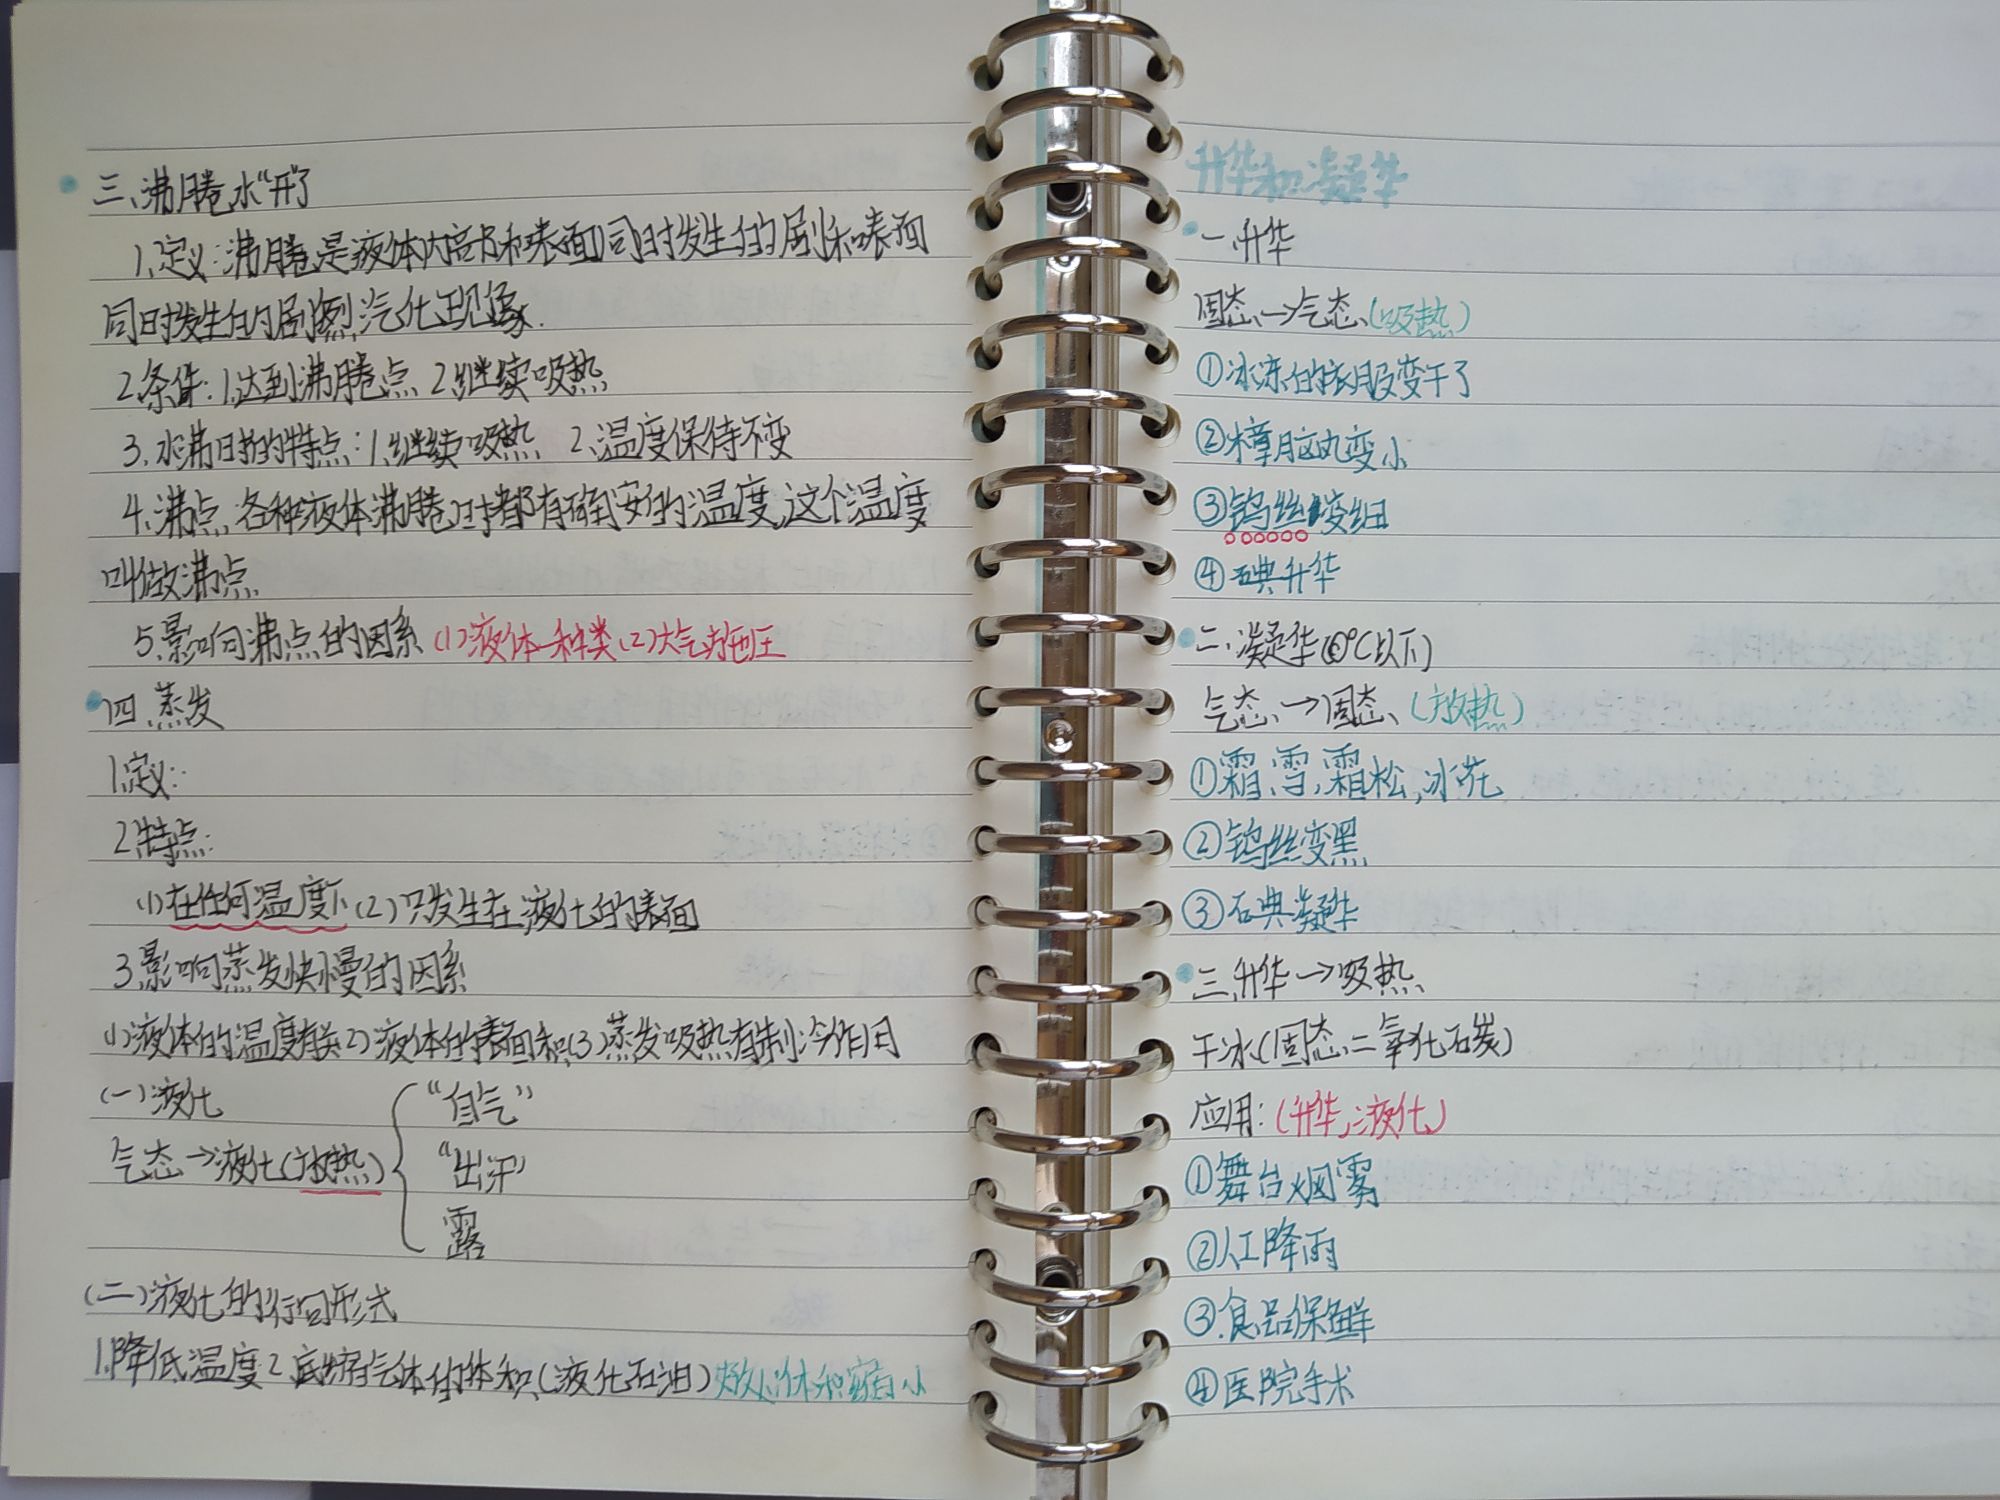 三、沸腾水“开”了
1、定义:沸腾是液体内部和表面同时发生的剧和表面
同时发生的剧烈汽化现象.
2条件:1达到沸腾点 2、继续吸热
3、水沸时的特点:1、继续吸热 2、温度保待不变
4、沸点、各种液体沸腾时都有确定的温度,这个温度
叫做沸点
5.影响沸点的因系(1)液体种类(2)大气
四、蒸发
1、定义:
2特点:
(1)在任何温度下(2)只发生在液化的表面
3、影响蒸发快慢的因系
(1)液体的温度有关2)液体的表面积(3)蒸发吸热有制冷作用
(一)液化
气态→液化(放热)
“白气”
“出汗”
露
(二)液化的行向形式
1.降低温度2、缩气体的体积(液化石油)体积小
升华和凝华
一、升华
固态→气态(吸热)
①冰冻的衣服变干了
②樟脑丸变小
③钨丝变细
④碘升华
二、凝华(0℃以下)
气态→固态(放热)
①霜、雪,霜松,冰花
②钨丝变黑
③石典凝华
三、升华→吸热
干冰(固态二氧化石炭)
应用:(升华;液化)
①舞台烟雾
②人工降雨
③.食品保鲜
④医院手术